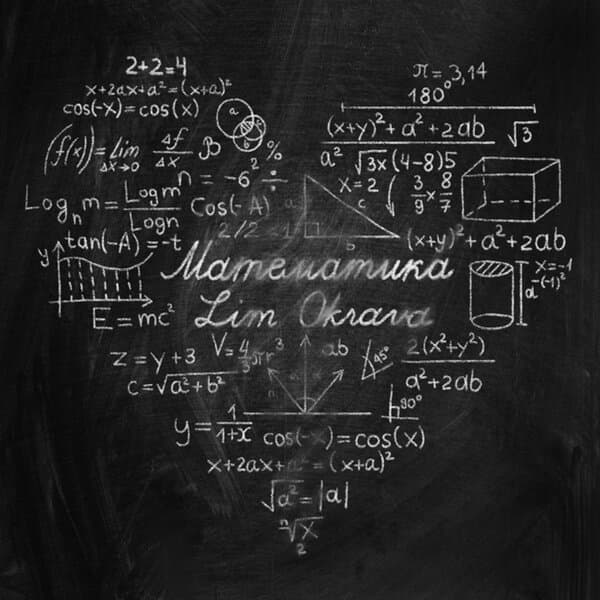 2+2=4
x+2ax+a²=(x+a)²
cos(-x)=cos(x)
π=3,14
180°
(f(x))=Lim Δx→0 Δf/Δx
(x+y)²+a²+2ab √3
a² √3x (4-8)5
n = -6² ÷ %
Logₙm = Logm/Logn
Cos(-A)
x=2 3/9 × 8/7
a c b
2/2=1
tan(-A)=-t
(x+y)²+a²+2ab
y
Математика
x=-1
a^-(1)²
E=mc²
Lim Okrava
z=y+3 V=4/3πr³ ab 45° 2(x²+y²)
c=√a²+b² a²+2ab
90°
y=1/1+x cos(-x)=cos(x)
x+2ax+a²=(x+a)²
√a²=|a|
ⁿ√x
2